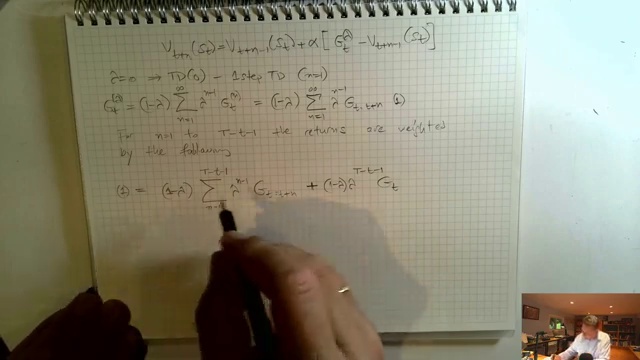 V_{t+n}(S_t) = V_{t+n-1}(S_t) + α[G_t^λ − V_{t+n-1}(S_t)]
λ=0 ⇒ TD(0) – 1 step TD (n=1)
G_t^{(λ)} = (1-λ) ∑_{n=1}^{∞} λ^{n-1} G_t^{(n)} = (1-λ) ∑_{n=1}^{∞} λ^{n-1} G_{t:t+n} (1)
For n=1 to T-t-1 the returns are weighted
by the following
(1) = (1-λ) ∑_{n=1}^{T-t-1} λ^{n-1} G_{t:t+n} + (1-λ) λ^{T-t-1} G_t